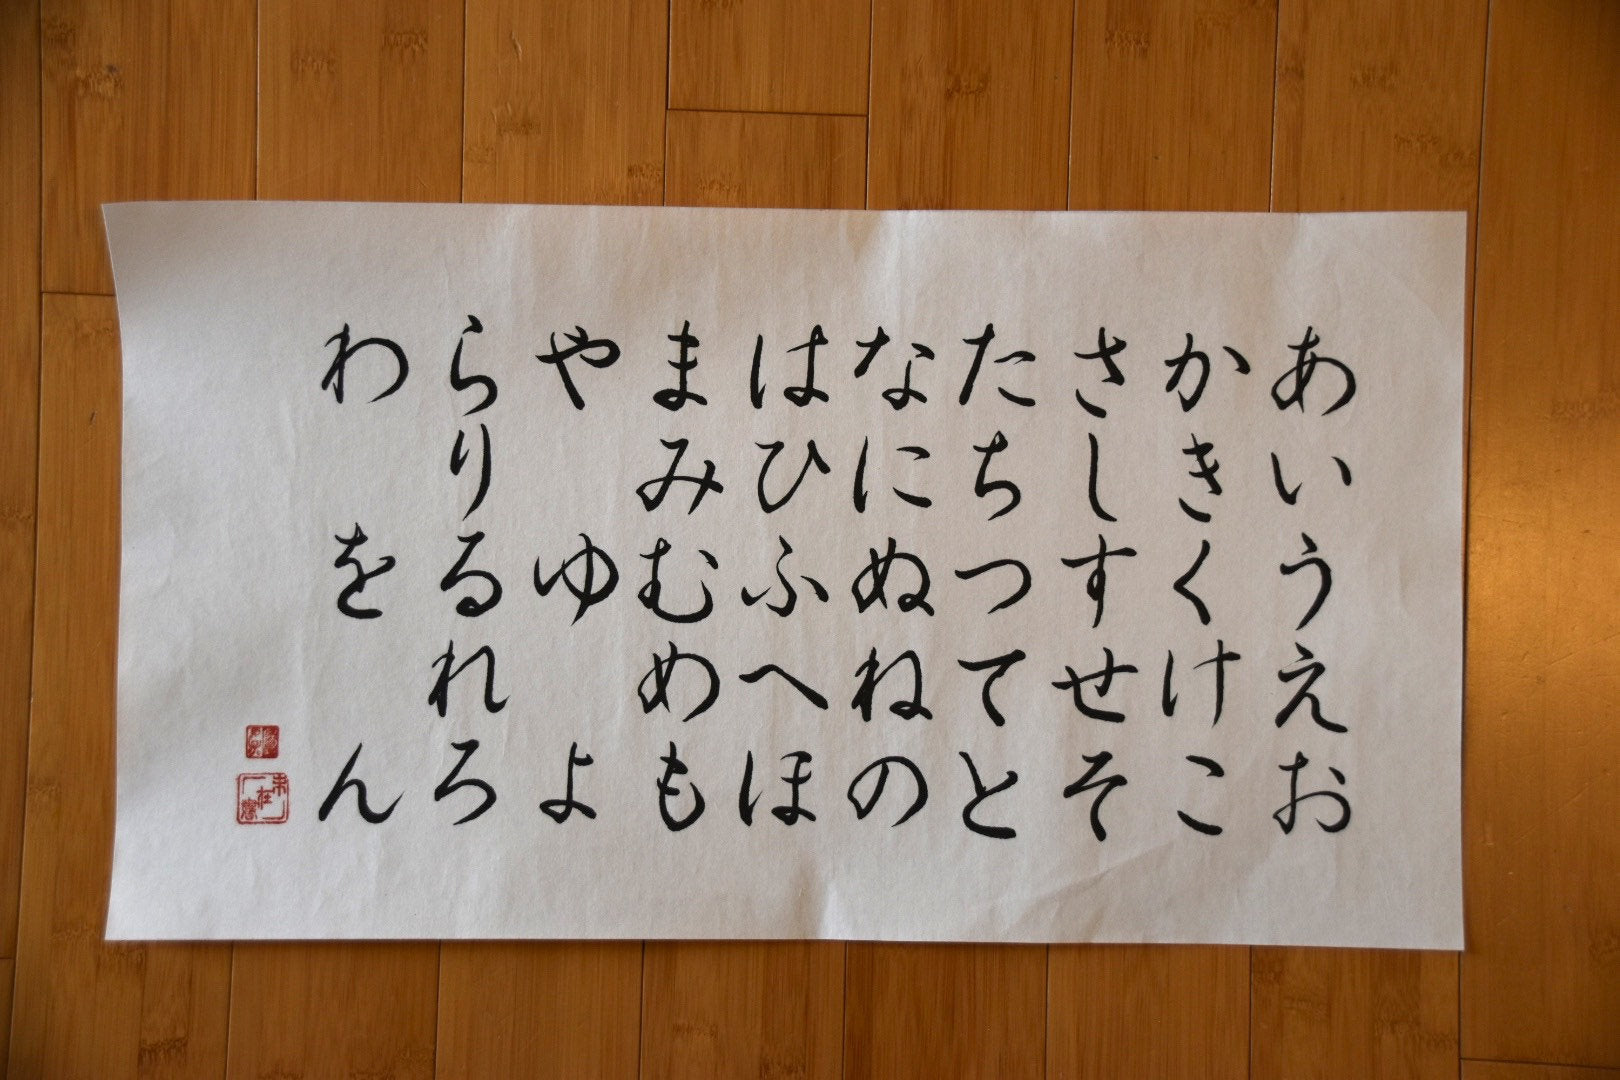 あいうえお
かきくけこ
さしすせそ
たちつてと
なにぬねの
はひふへほ
まみむめも
や ゆ よ
らりるれろ
わ を ん